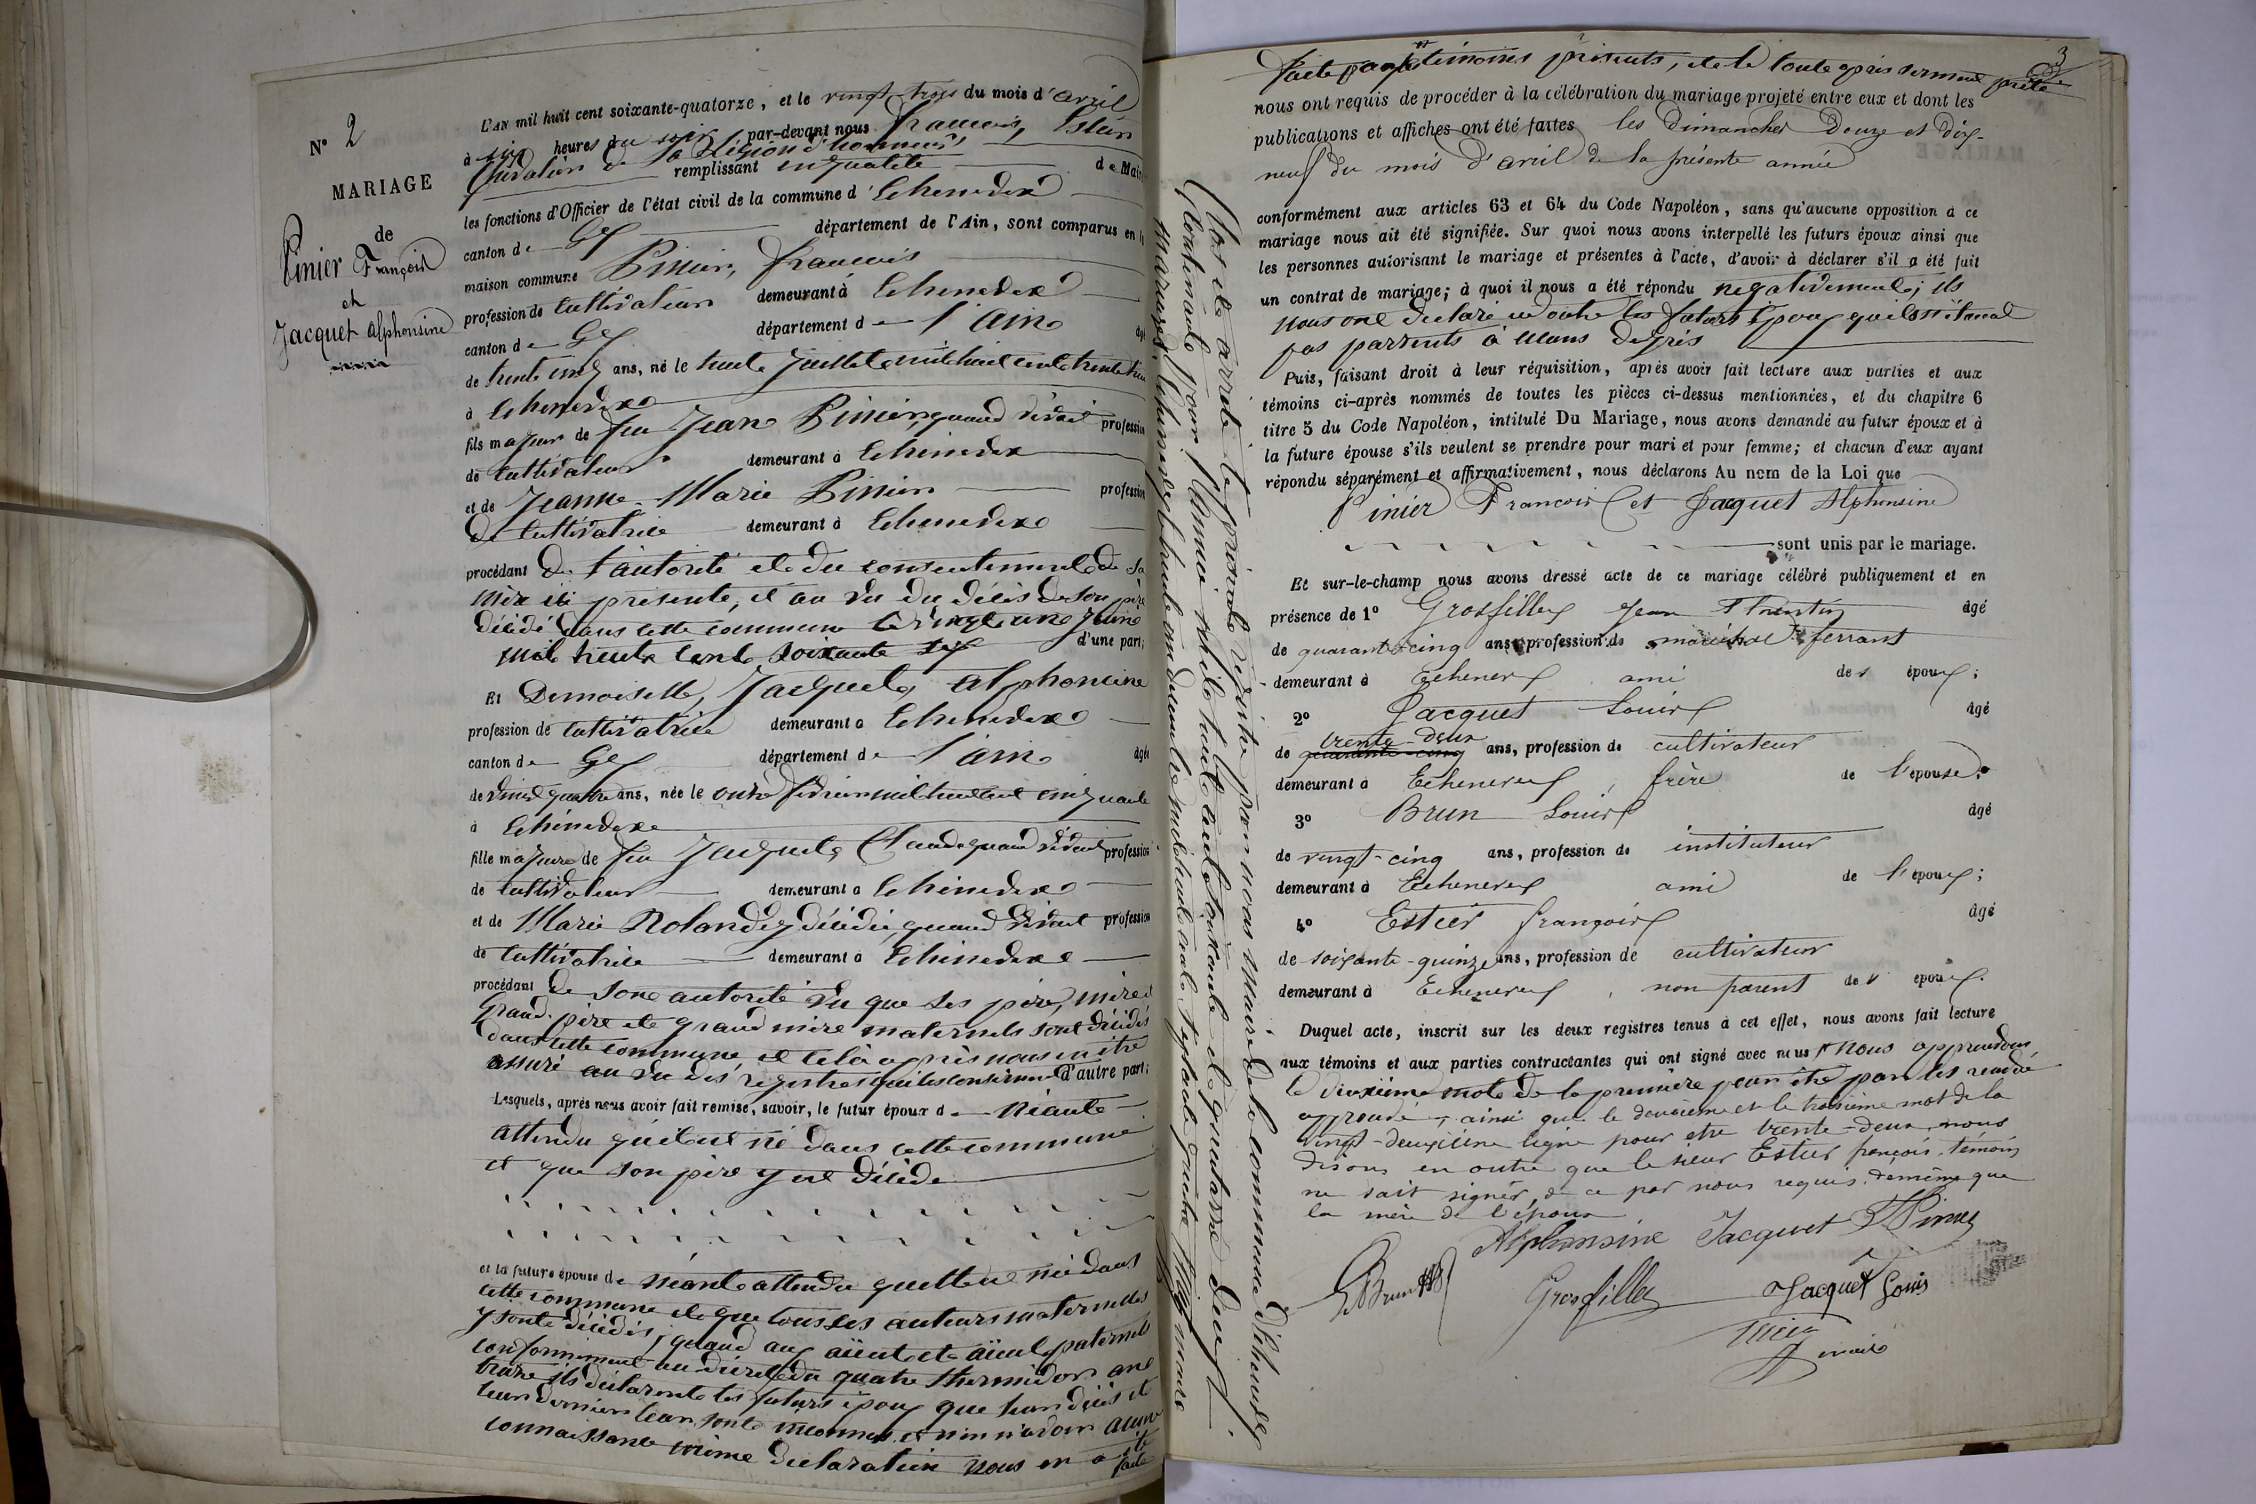 N° 2
MARIAGE
de
Pinier François
et
Jacquet Alphonsine
L'AN mil huit cent soixante-quatorze, et le vingt-trois du mois d'avril
à six heures du soir par-devant nous François
Chevalier de la Légion d'honneur
remplissant en qualité de Maire
les fonctions d'Officier de l'état civil de la commune d'Echenevex
canton de Gex département de l'Ain, sont comparus en la
maison commune Pinier, François
profession de cultivateur demeurant à Echenevex
canton de Gex département de l'Ain âgé
de trente ans, né le trente Juillet mil huit cent trente
à Echenevex
fils majeur de feu Jean Pinier, quand vivait profession
de cultivateur demeurant à Echenevex
et de Jeanne-Marie Pinier profession
de cultivatrice demeurant à Echenevex
procédant de l'autorité et du consentement de sa
mère ici présente, et au vu du décès de son père
décédé dans cette commune le vingt un Juin
mil huit cent soixante six d'une part;
Et Demoiselle, Jacquet Alphonsine
profession de cultivatrice demeurant à Echenevex
canton de Gex département de l'Ain âgée
de vingt quatre ans, née le onze février mil huit cent cinquante
à Echenevex
fille majeure de feu Jacquet, Claude quand vivait profession
de cultivateur demeurant à Echenevex
et de Marie Rolandez décédée, quand vivait profession
de cultivatrice demeurant à Echenevex
procédant de son autorité vu que ses père, mère et
Grand-père et grand mère maternels sont décédés
dans cette commune et cela après nous en être
assuré au vu des registres qui les constatent d'autre part;
Lesquels, après nous avoir fait remise, savoir, le futur époux de néant
attendu qu'il est né dans cette commune
et que son père y est décédé
et la future épouse de néant attendu qu'elle est née dans
cette commune et que tous ses auteurs maternelles
y sont décédés, quand aux aïeul et aïeule paternels
conformément au décret du quatre thermidor an
treize ils déclarent les futurs époux que leur décès et
leur dernier lieu sont inconnus et n'en avoir aucune
connaissance même déclaration nous en a été
faite
Clos et arrêté le présent registre par nous maire de la commune d'Echenevex
contenant pour l'année mil huit cent soixante et quatorze deux
mariages, à Echenevex le trente un décembre mil huit cent soixante quatorze
3
faite par les témoins présents, et le tout après serment prêté
nous ont requis de procéder à la célébration du mariage projeté entre eux et dont les
publications et affiches ont été faites les Dimanches Douze et Dix-
neuf du mois d'avril de la présente année
conformément aux articles 63 et 64 du Code Napoléon, sans qu'aucune opposition à ce
mariage nous ait été signifiée. Sur quoi nous avons interpellé les futurs époux ainsi que
les personnes autorisant le mariage et présentes à l'acte, d'avoir à déclarer s'il a été fait
un contrat de mariage; à quoi il nous a été répondu négativement; ils
nous ont déclaré en outre les futurs époux qu'ils n'étaient
pas parents à leurs degrés
Puis, faisant droit à leur réquisition, après avoir fait lecture aux parties et aux
témoins ci-après nommés de toutes les pièces ci-dessus mentionnées, et du chapitre 6
titre 5 du Code Napoléon, intitulé Du Mariage, nous avons demandé au futur époux et à
la future épouse s'ils veulent se prendre pour mari et pour femme; et chacun d'eux ayant
répondu séparément et affirmativement, nous déclarons Au nom de la Loi que
Pinier François et Jacquet Alphonsine
sont unis par le mariage.
Et sur-le-champ nous avons dressé acte de ce mariage célébré publiquement et en
présence de 1° Grosfilley Jean Florentin âgé
de quarante-cinq ans, profession de maréchal ferrant
demeurant à Echenevex ami de l'époux;
2° Jacquet Louis âgé
trente-deux
de quarante-cinq ans, profession de cultivateur
demeurant à Echenevex, frère de l'épouse;
3° Brun Louis âgé
de vingt-cinq ans, profession de instituteur
demeurant à Echenevex ami de l'époux;
4° Estier françois âgé
de soixante-quinze ans, profession de cultivateur
demeurant à Echenevex, non parent de l'époux.
Duquel acte, inscrit sur les deux registres tenus à cet effet, nous avons fait lecture
aux témoins et aux parties contractantes qui ont signé avec nous nous approuvons
le deuxième mot de la première pour être par les rendu
approuvé, ainsi que le deuxième et le troisième mot de la
vingt-deuxième ligne pour être trente-deux, nous
disons en outre que le sieur Estier françois, témoin
ne sait signer, de ce par nous requis, de même que
la mère de l'époux
Alphonsine Jacquet F Pinier
L Brun Grosfilley Jacquet Louis
maire